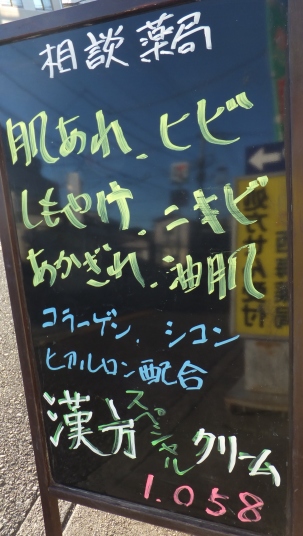 相談薬局
肌あれ、ヒビ
しもやけ、ニキビ
あかぎれ、油肌
コラーゲン、シコン
ヒアルロン配合
漢方スペシャルクリーム
1.058